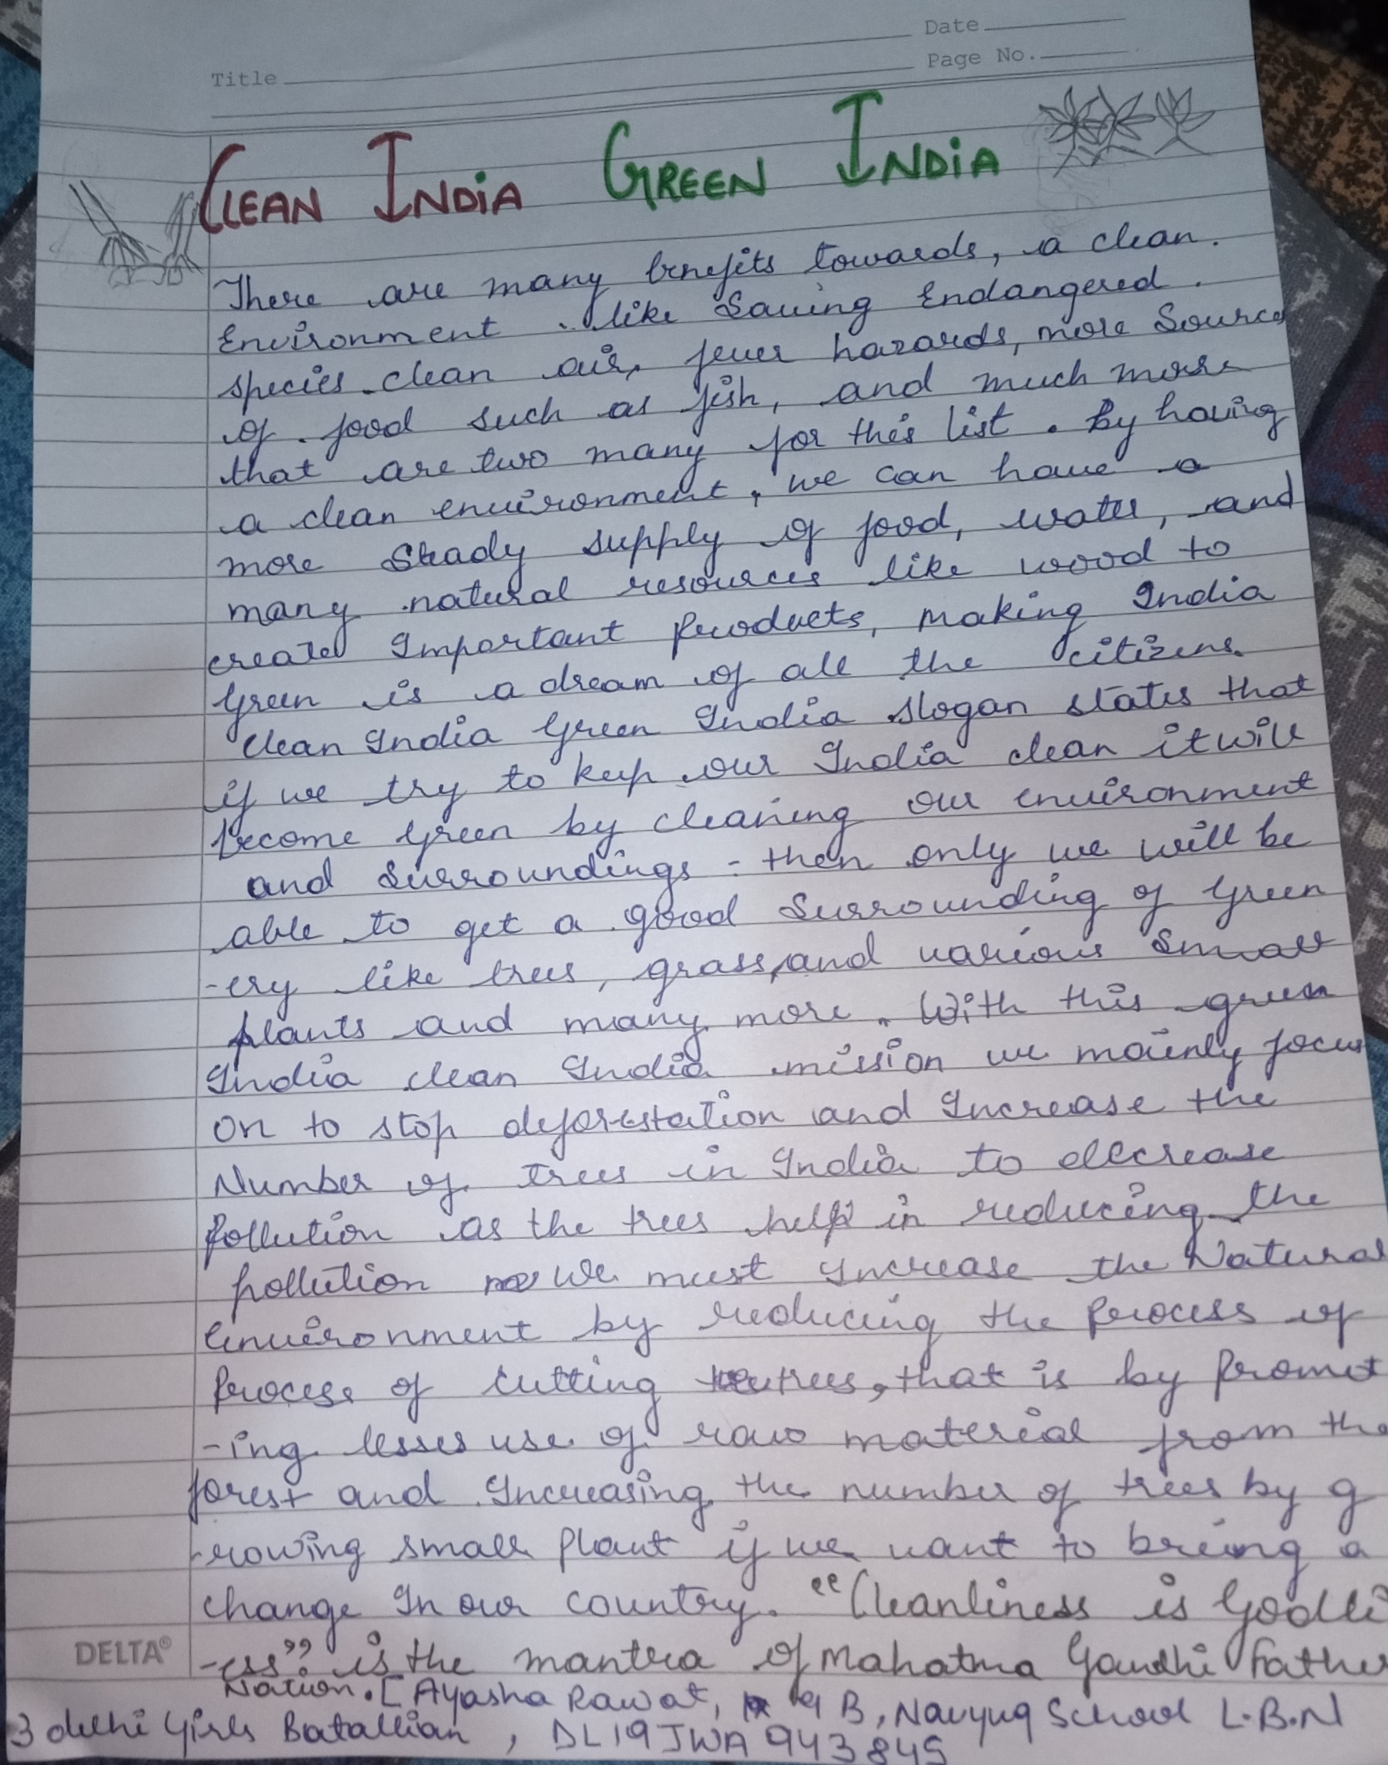 Date
Page No.
Title
CLEAN INDIA GREEN INDIA
There are many benefits towards, a clean.
Environment. like Saving Endangered.
species. clean air, fewer hazards, more Source
of food such as fish, and much more
that are two many for this list. By having
a clean environment, we can have a
more Steady supply of food, water, and
many natural resources like wood to
created Important Products, making India
Green is a dream of all the citizens.
Clean India Green India slogan states that
if we try to keep our India clean it will
become Green by cleaning our environment
and surroundings - then only we will be
able to get a good surrounding of Green
-ery like trees, grass, and various small
plants and many more. With this green
India clean India mission we mainly focus
on to stop deforestation and Increase the
Number of trees in India to decrease
pollution as the trees help in reducing the
pollution we must Increase the Natural
Environment by reducing the Process of
Process of cutting trees, that is by Promot
-ing lesser use of raw material from the
forest and Increasing the number of trees by g
-rowing small plant if we want to bring a
change In our country. "Cleanliness is Godli
-ess" is the mantra of Mahatma Gandhi Father
DELTA®
Nation. [Ayasha Rawat, 9 B, Navyug School L.B.N
3 delhi Girls Batallian, DL19JWA943845